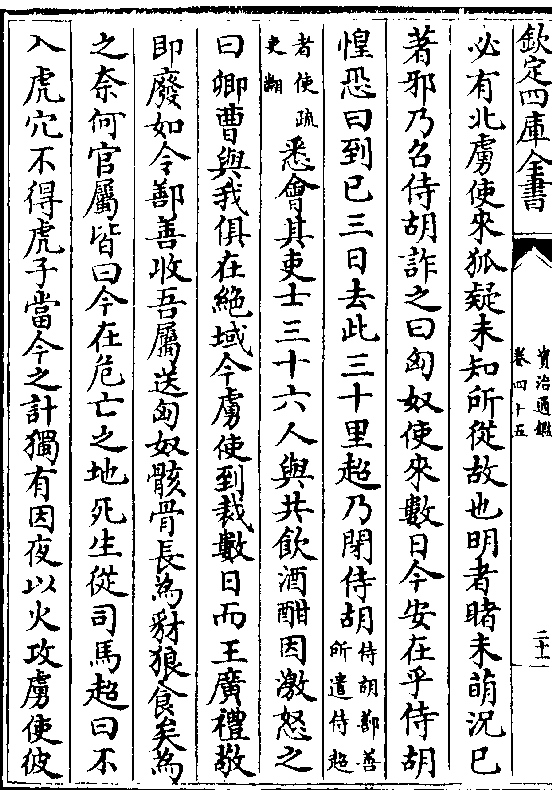 欽定四庫全書
資治通鑑
卷四十五
二十一
必有北虜使來狐疑未知所從故也明者睹未萌況已
著邪乃召侍胡詐之曰匈奴使來數日今安在乎侍胡
惶恐曰到已三日去此三十里超乃閉侍胡侍胡鄯善所遣侍超
者使疏吏翻悉會其吏士三十六人與共飲酒酣因激怒之
曰卿曹與我俱在絶域今虜使到裁數日而王廣禮敬
即廢如令鄯善收吾屬送匈奴骸骨長為豺狼食矣為
之奈何官屬皆曰今在危亡之地死生從司馬超曰不
入虎穴不得虎子當今之計獨有因夜以火攻虜使彼